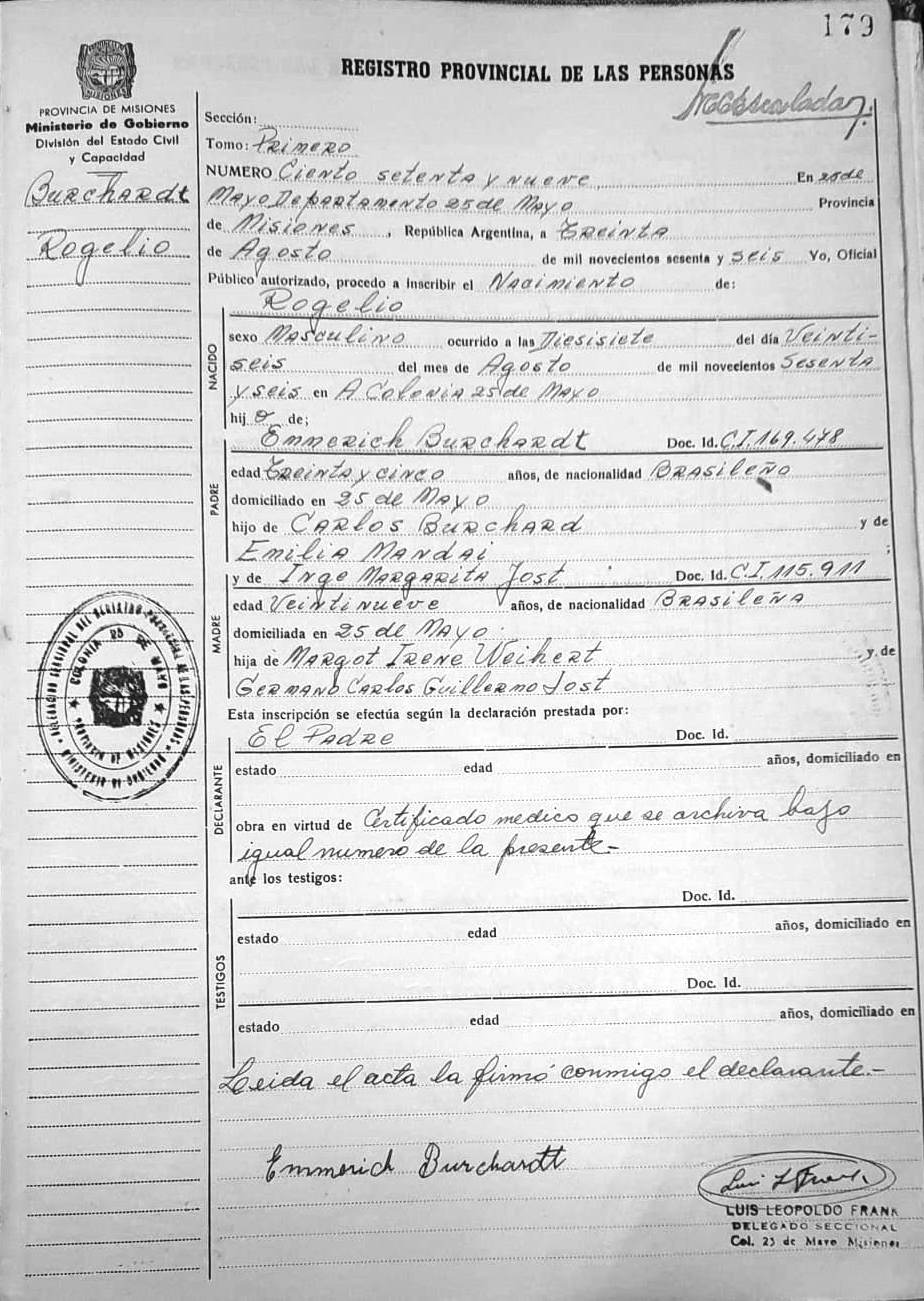 179
REGISTRO PROVINCIAL DE LAS PERSONAS
MISIONES
PROVINCIA DE MISIONES
Ministerio de Gobierno
División del Estado Civil
y Capacidad
Burchardt
Rogelio
Sección:
Tomo: Primero
NUMERO Ciento setenta y nueve En 25 de
Mayo Departamento 25 de Mayo Provincia
de Misiones, República Argentina, a Treinta
de Agosto de mil novecientos sesenta y seis Yo, Oficial
Público autorizado, procedo a inscribir el Nacimiento de:
NACIDO
Rogelio
sexo Masculino ocurrido a las Diesisiete del día Veinti-
seis del mes de Agosto de mil novecientos Sesenta
y seis en A Colonia 25 de Mayo
hijo de;
PADRE
Emmerich Burchardt Doc. Id. C.I. 169.478
edad Treinta y cinco años, de nacionalidad Brasileño
domiciliado en 25 de Mayo
hijo de Carlos Burchard y de
Emilia Mandai ;
MADRE
y de Inge Margarita Jost Doc. Id. C.I. 115.911
edad Veintinueve años, de nacionalidad Brasileña
domiciliada en 25 de Mayo
hija de Margot Irene Weihert y de
Germano Carlos Guillermo Jost
Esta inscripción se efectúa según la declaración prestada por:
DECLARANTE
El Padre Doc. Id.
estado edad años, domiciliado en
obra en virtud de Certificado medico que se archiva bajo
igual numero de la presente.-
ante los testigos:
TESTIGOS
Doc. Id.
estado edad años, domiciliado en
Doc. Id.
estado edad años, domiciliado en
Leida el acta la firmó conmigo el declarante.-
Emmerich Burchardt
LUIS LEOPOLDO FRANK
DELEGADO SECCIONAL
Col. 25 de Mayo Misiones
DELEGACION SECCIONAL DEL REGISTRO PROVINCIAL DE LAS PERSONAS
MINISTERIO DE GOBIERNO
COLONIA 25 DE MAYO
PROVINCIA DE MISIONES